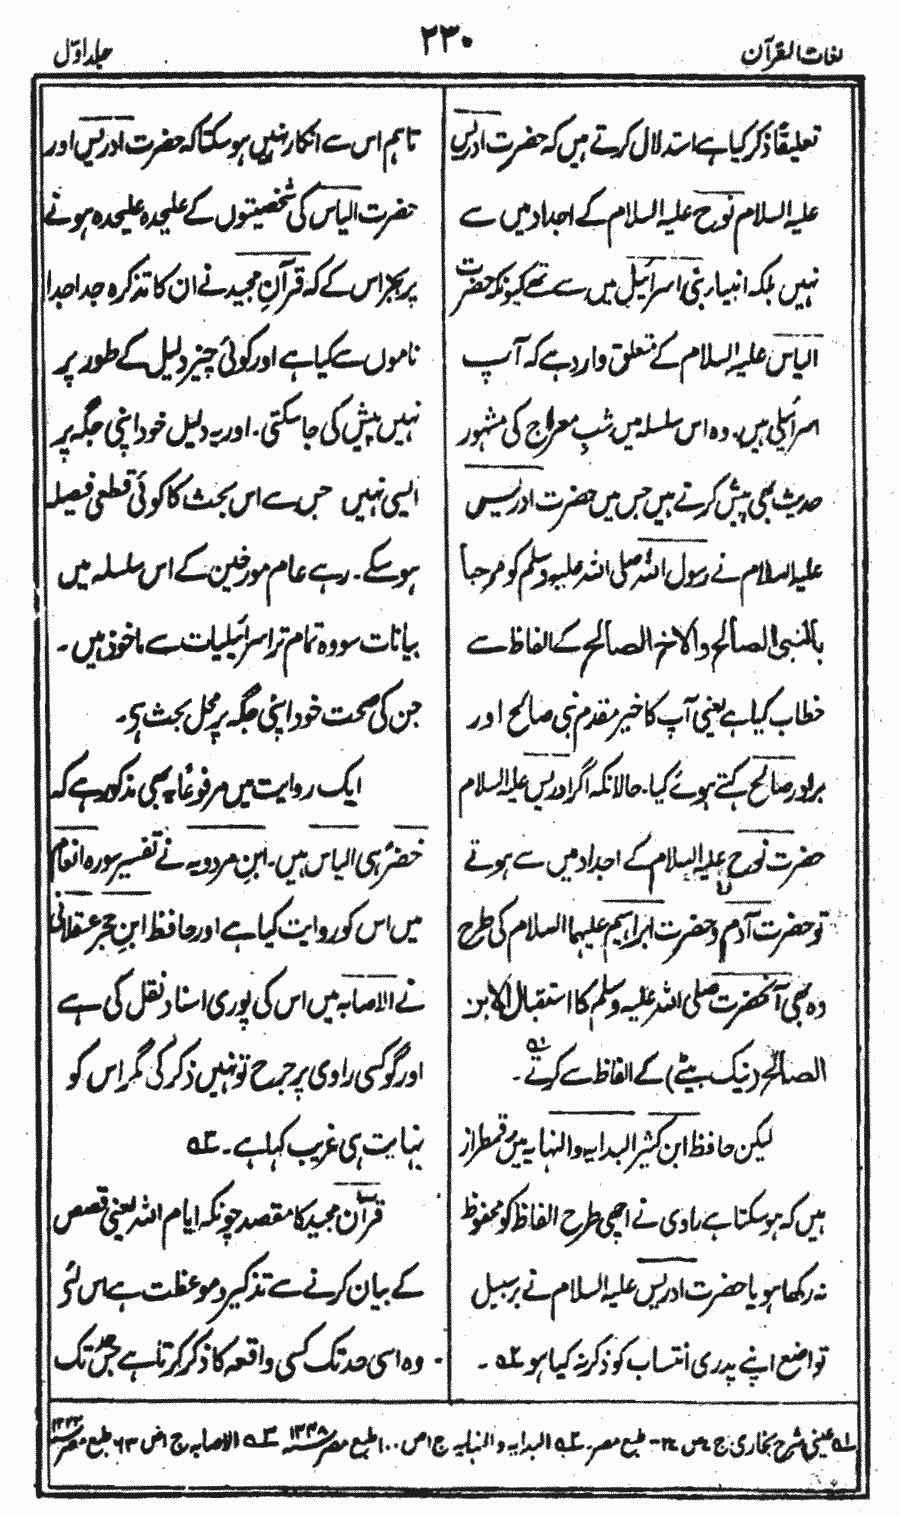 لغات القرآن
۲۳۰
جلد اوّل
تعلیقًا ذکر کیا ہے استدلال کرتے ہیں کہ حضرت ادریس
علیہ السلام نوح علیہ السلام کے اجداد میں سے
نہیں بلکہ انبیاء بنی اسرائیل میں سے تھے کیونکہ حضرت
الیاس علیہ السلام کے متعلق وارد ہے کہ آپ
اسرائیلی ہیں، وہ اس سلسلہ میں شبِ معراج کی مشہور
حدیث بھی پیش کرتے ہیں جس میں حضرت ادریس
علیہ السلام نے رسول اللہ صلی اللہ علیہ وسلم کو مرحباً
بالنبی الصالح والاخ الصالح کے الفاظ سے
خطاب کیا ہے یعنی آپ کا خیر مقدم نبی صالح اور
برادر صالح کہتے ہوئے کیا۔ حالانکہ اگر ادریس علیہ السلام
حضرت نوح علیہ السلام کے اجداد میں سے ہوتے
تو حضرت آدم و حضرت ابراہیم علیہما السلام کی طرح
وہ بھی آنحضرت صلی اللہ علیہ وسلم کا استقبال الابن
الصالح (نیک بیٹے) کے الفاظ سے کرتے ۱ے۔
لیکن حافظ ابن کثیر البدایہ والنہایہ میں رقمطراز
ہیں کہ ہو سکتا ہے راوی نے اچھی طرح الفاظ کو محفوظ
نہ رکھا ہو یا حضرت ادریس علیہ السلام نے بر سبیل
تواضع اپنے پدری انتساب کو ذکر نہ کیا ہو ۲ے۔
تاہم اس سے انکار نہیں ہو سکتا کہ حضرت ادریس اور
حضرت الیاس کی شخصیتوں کے علیحدہ علیحدہ ہونے
پر بجز اس کے کہ قرآنِ مجید نے ان کا تذکرہ جدا جدا
ناموں سے کیا ہے اور کوئی چیز دلیل کے طور پر
نہیں پیش کی جا سکتی۔ اور یہ دلیل خود اپنی جگہ پر
ایسی نہیں جس سے اس بحث کا کوئی قطعی فیصلہ
ہو سکے۔ رہے عام مورخین کے اس سلسلہ میں
بیانات سو وہ تمام تر اسرائیلیات سے ماخوذ ہیں۔
جن کی صحت خود اپنی جگہ پر محل بحث ہی۔
ایک روایت میں مرفوعًا یہ بھی مذکور ہے کہ
خضر ہی الیاس ہیں۔ ابن مردویہ نے تفسیر سورہ انعام
میں اس کو روایت کیا ہے اور حافظ ابنِ حجر عسقلانی
نے الاصابہ میں اس کی پوری اسناد نقل کی ہے
اور گو کسی راوی پر جرح تو نہیں ذکر کی مگر اس کو
نہایت ہی غریب کہا ہے۔ ۳ے
قرآن مجید کا مقصد چونکہ ایام اللہ یعنی قصص
کے بیان کرنے سے تذکیر و موعظت ہے اس لئے
وہ اسی حد تک کسی واقعہ کا ذکر کرتا ہے جس حد تک
۱ے عینی شرح بخاری ج ص طبع مصر۔ ۲ے البدایہ والنہایہ ج ۱ ص ۱۰۰ طبع مصر ۳ے الاصابہ ج ۱ ص ۶۳ طبع مصر